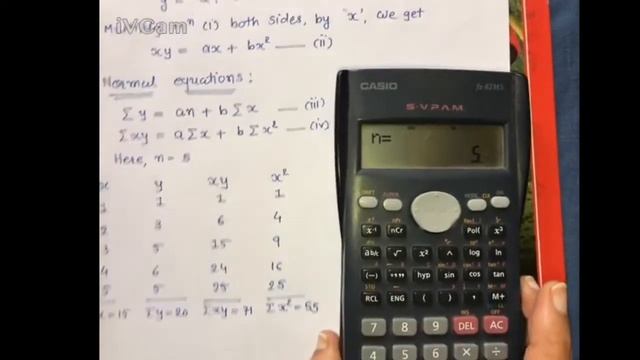 iVCam
(i) both sides, by 'x', we get
xy = ax + bx² —— (ii)
Normal equations:
Σy = an + bΣx —— (iii)
Σxy = aΣx + bΣx² —— (iv)
Here, n = 5
x y xy x²
1 1 1 1
2 3 6 4
3 5 15 9
4 6 24 16
5 5 25 25
= 15 Σy = 20 Σxy = 71 Σx² = 55
CASIO fx-82MS
S-V.P.A.M.
n=
5
SHIFT ALPHA MODE CLR ON
x⁻¹ nCr Pol( x³
ab/c √ x² ^ log ln
(−) °’” hyp sin cos tan
RCL ENG ( ) , M+
7 8 9 DEL AC
4 5 6 × ÷